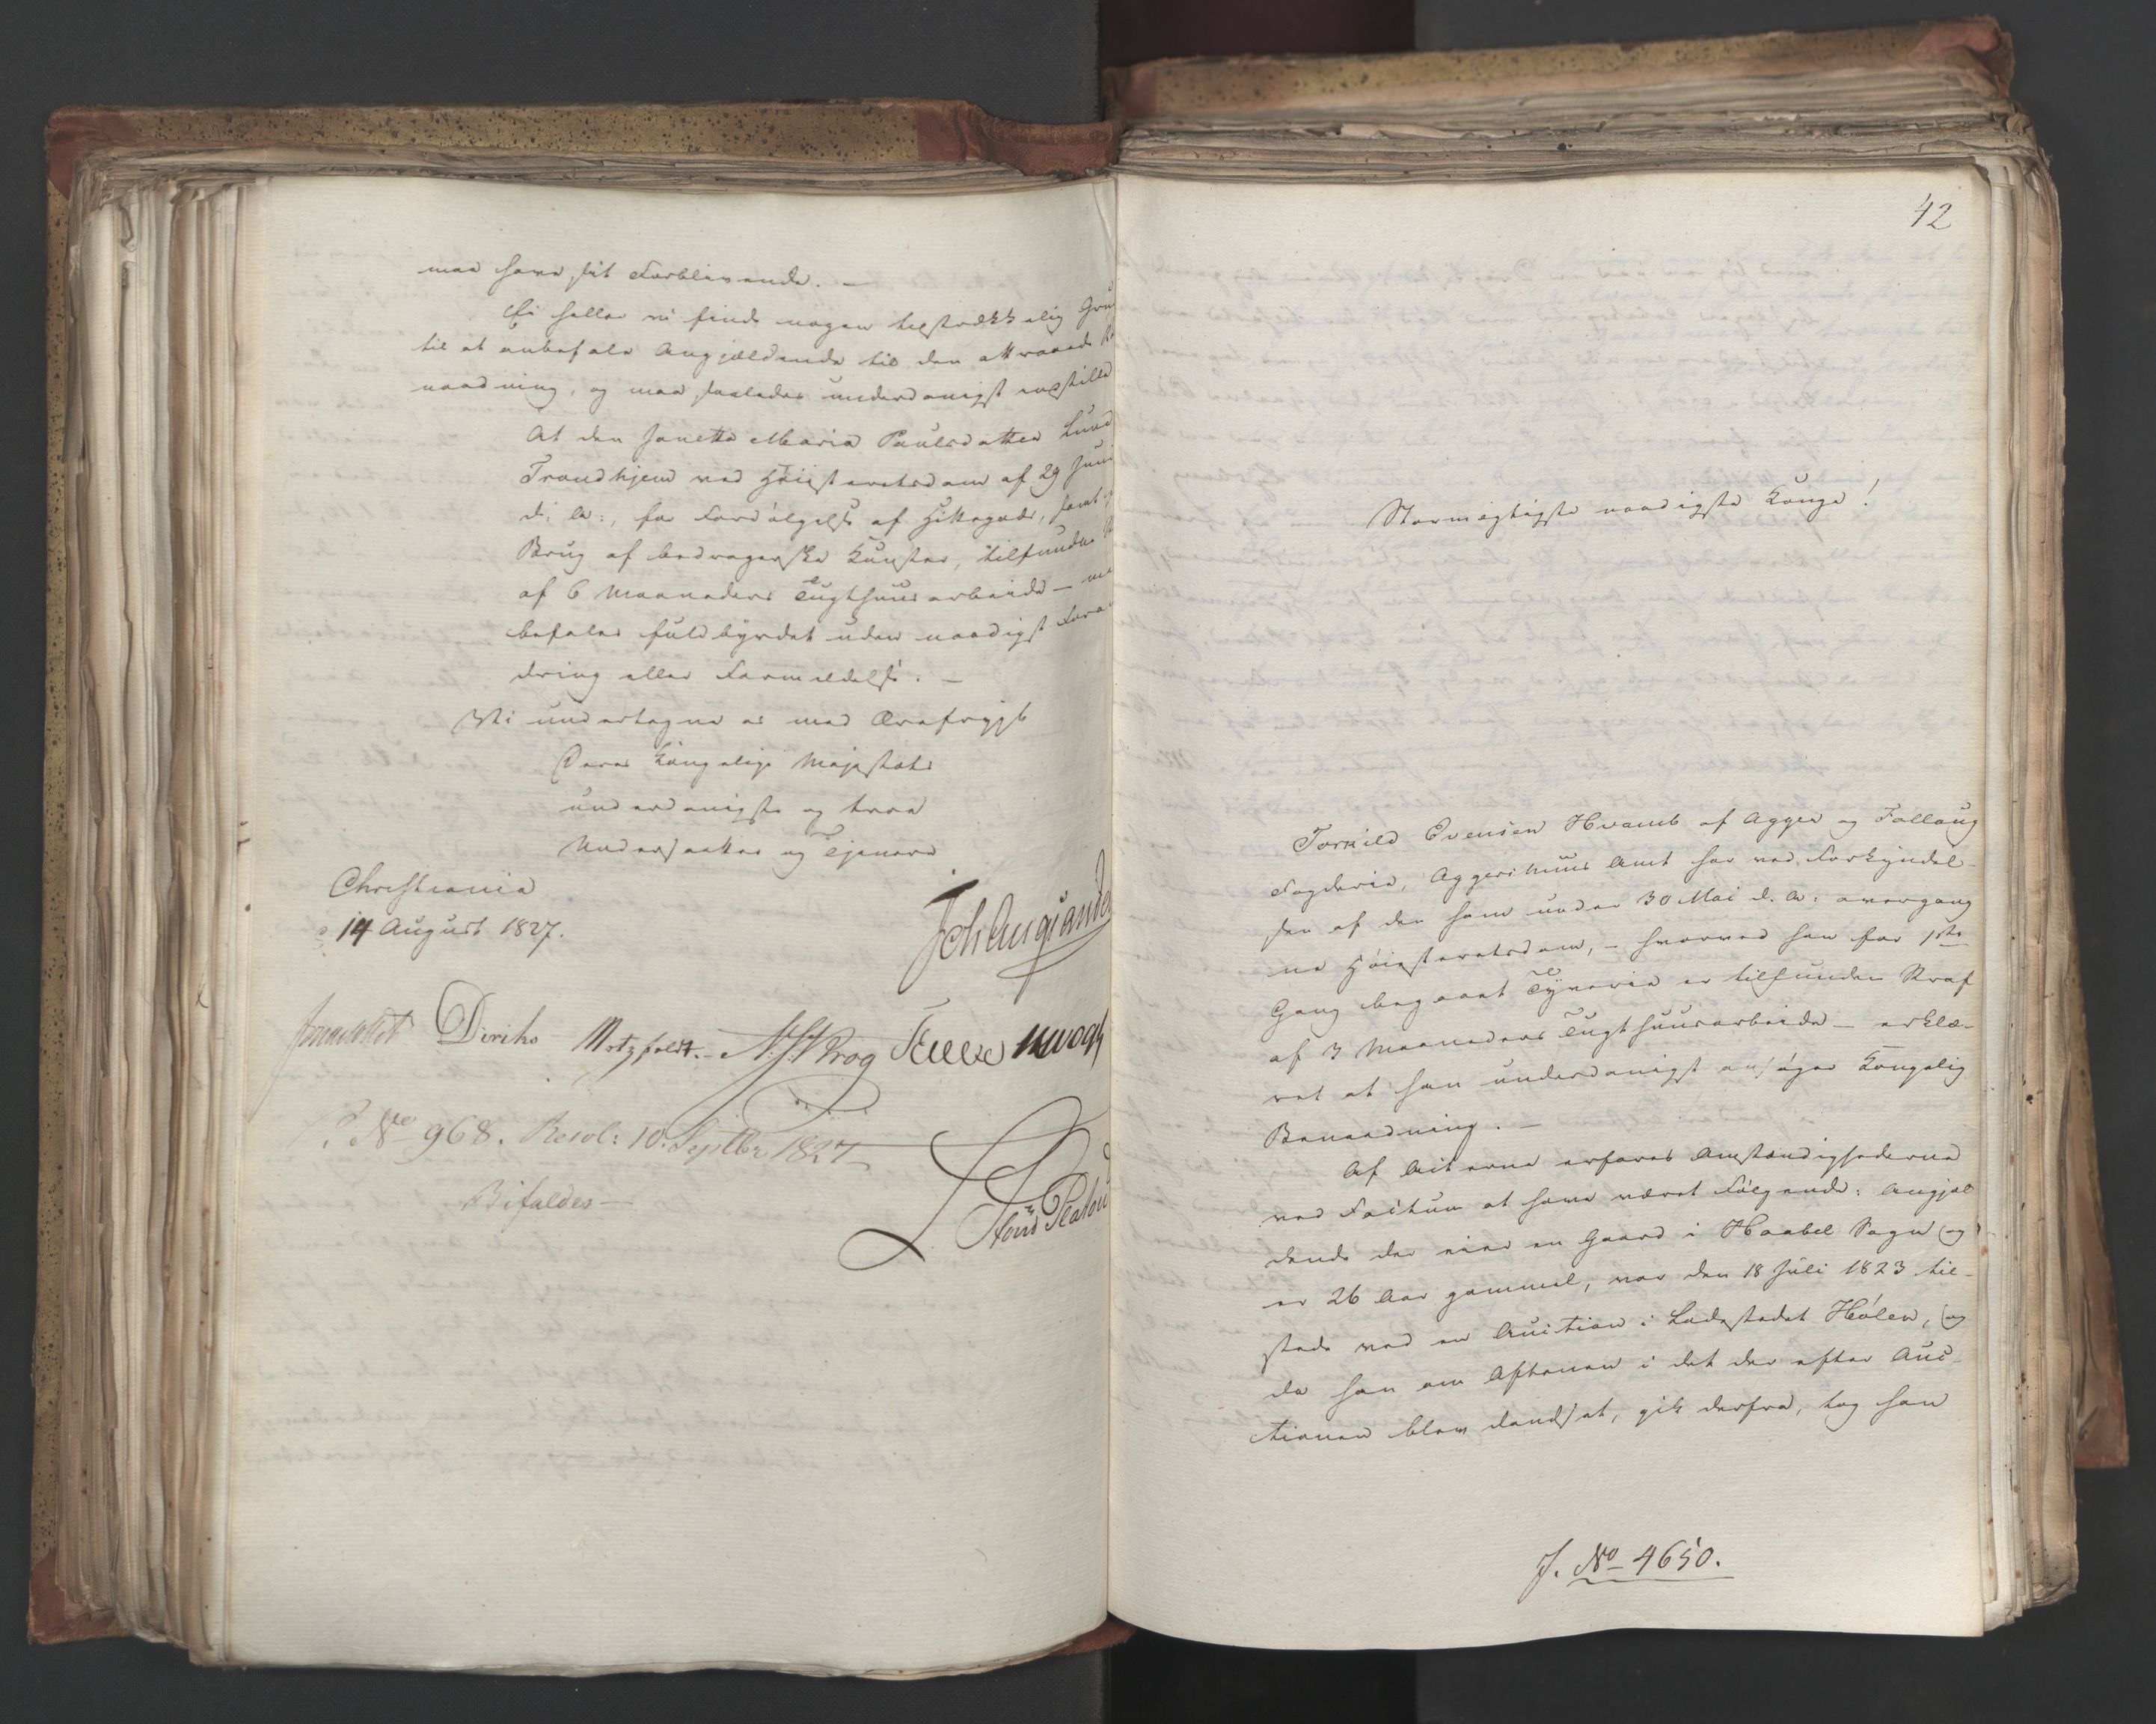 maa have sit Forblivende. —
Ei heller vi finde nogen tilstrækkelig Gru
til at anbefale Angjældende til den attraaede Be
naadning, og maa saaledes underdanigst indstille
At den Janette Maria Paulsdatter Lund
Trondhjem ved Høiesteretsdom af 29 Juni
d: A:, for Fordølgelse af Hittegods, samt
Brug af bedragerske Kunster, tilfundne
af 6 Maaneders Tugthuusarbeide —
befales fuldbyrdet uden naadigst Foran
dring eller Formildelse. —
Vi undertegne os med Ærefrygt
Deres Kongelige Majestæts
underdanigste og troe
Undersaatter og Tjenere
Christiania
14 August 1827.
Diriks Motzfeldt. Krog
No 968. Resol: 10. Septbr 1827
Bifaldes —
42
Stormægtigste naadigste Konge!
Torkild Evensen Hvamb af Agger og Follaug
Fogderie, Aggershuus Amt har ved Forkyndel-
sen af den ham under 30 Mai d. A: overgang
ne Høiesteretsdom, — hvorved han for 1ste
Gang begaaet Tyverie er tilfunden Straf
af 3 Maaneders Tugthuusarbeide — erklæ-
ret at han underdanigst ansøger Kongelig
Benaadning. —
Af Acterne erfares Omstændighederne
ved Factum at have været følgende: Angjæl
dende der eier en Gaard i Haabel Sogn og
er 26 Aar gammel, var den 18 Juli 1823 til-
stede ved en Auction i Ladestedet Hølen, og
da han om Aftenen i det der efter Auc-
tionen blev dandset, gik derfra, tog han
J. No 4650.